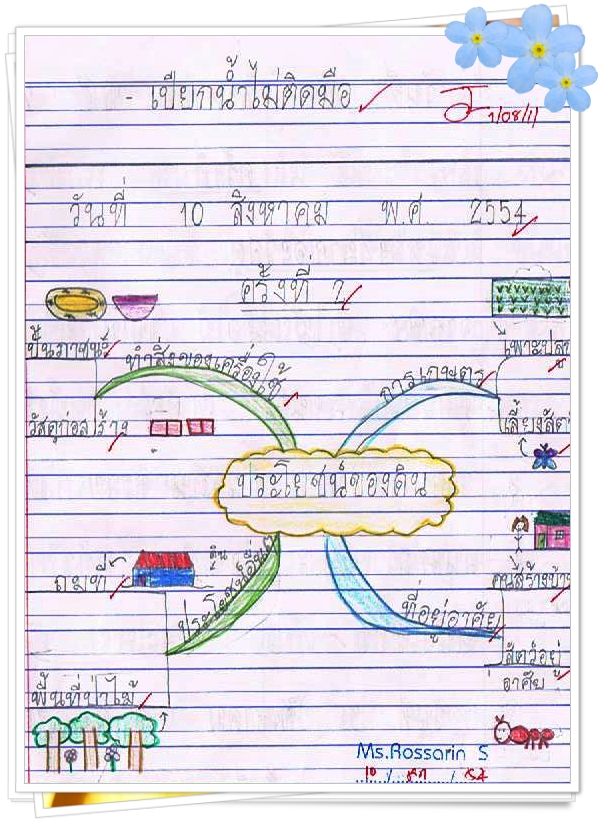 - เปียกน้ำไม่ติดมือ
1/08/11
วันที่ 10 สิงหาคม พ.ศ. 2554
ครั้งที่ 7
ปั้นภาชนะ
ทำสิ่งของเครื่องใช้
การเกษตร
เพาะปลูก
วัสดุก่อสร้าง
เลี้ยงสัตว์
ประโยชน์ของดิน
ดิน
ถมที่
ประโยชน์อื่นๆ
ที่อยู่อาศัย
คนสร้างบ้าน
สัตว์อยู่
อาศัย
พื้นที่ป่าไม้
Ms.Rossarin S
10 / สค / 54